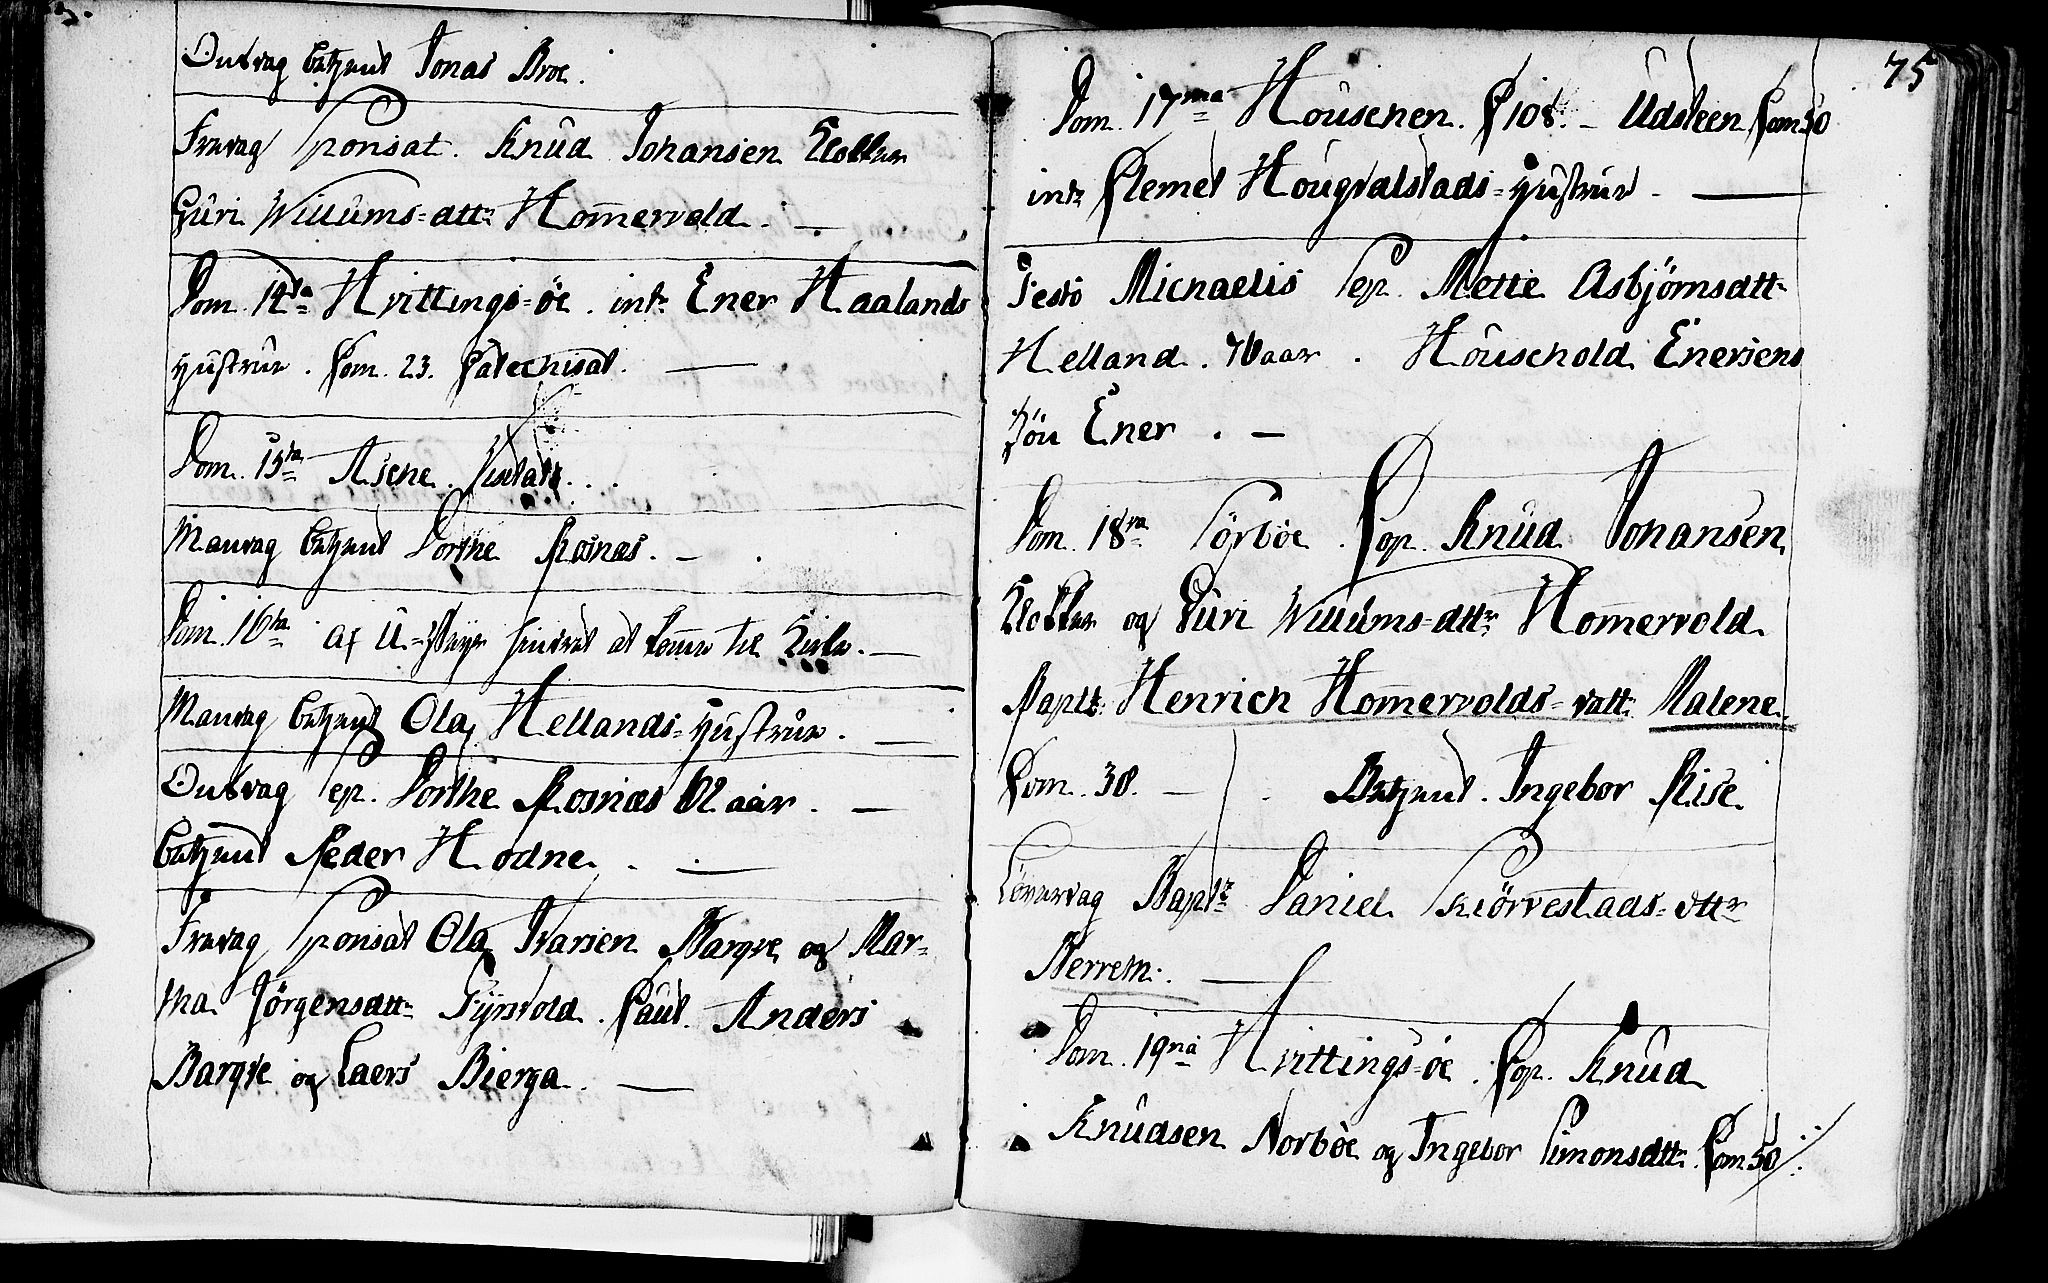 Onsdag betjent Jonas Broe.
Fredag Sponsat. Knud Johansen Klokker
Guri Willums-dttr Homervold. —
Dom. 14da Hvittings-öe. intr. Ener Haalands
Hustrue. Com. 23. Catechisat. —
Dom. 15ta Ascne. Visitatz.
Mandag betjent Dorthe Rosnæs. —
Dom. 16ta af U-Veyr hindret at komme til Kirke. —
Mandag betjent Ola Hellands-Hustrue. —
Onsdag Sep. Dorthe Rosnæs 62 aar. —
betjent Peder Hodne. —
Fredag Sponsat Ola Ivarsen Barqve og Mar-
tha Jörgensdttr Fyrsvold. Caut. Anders
Barqve og Laers Bierga. —
75
Dom. 17ma Houschen. P108. - Udsteen Com 50
intr Clemet Hougvalstads-Hustrue. —
Festo Michaelis Sep. Mette Asbjörnsdttr
Helland. 76 aar. Houschold Enersens
Sön Ener. —
Dom. 18va Sörböe. Cop. Knud Johansen
Klokker og Guri Willums-dttr Homervold.
Baptz: Henrich Homervolds-datt: Malene.
Com. 38. — Betjent. Ingebor Rise.
Löverdag Baptz Daniel Skiörvestads-dttr
Berreth. —
Dom. 19na Hvittings-öe. Cop. Knud
Knudsen Norböe og Ingebor Simonsdttr. Com 50